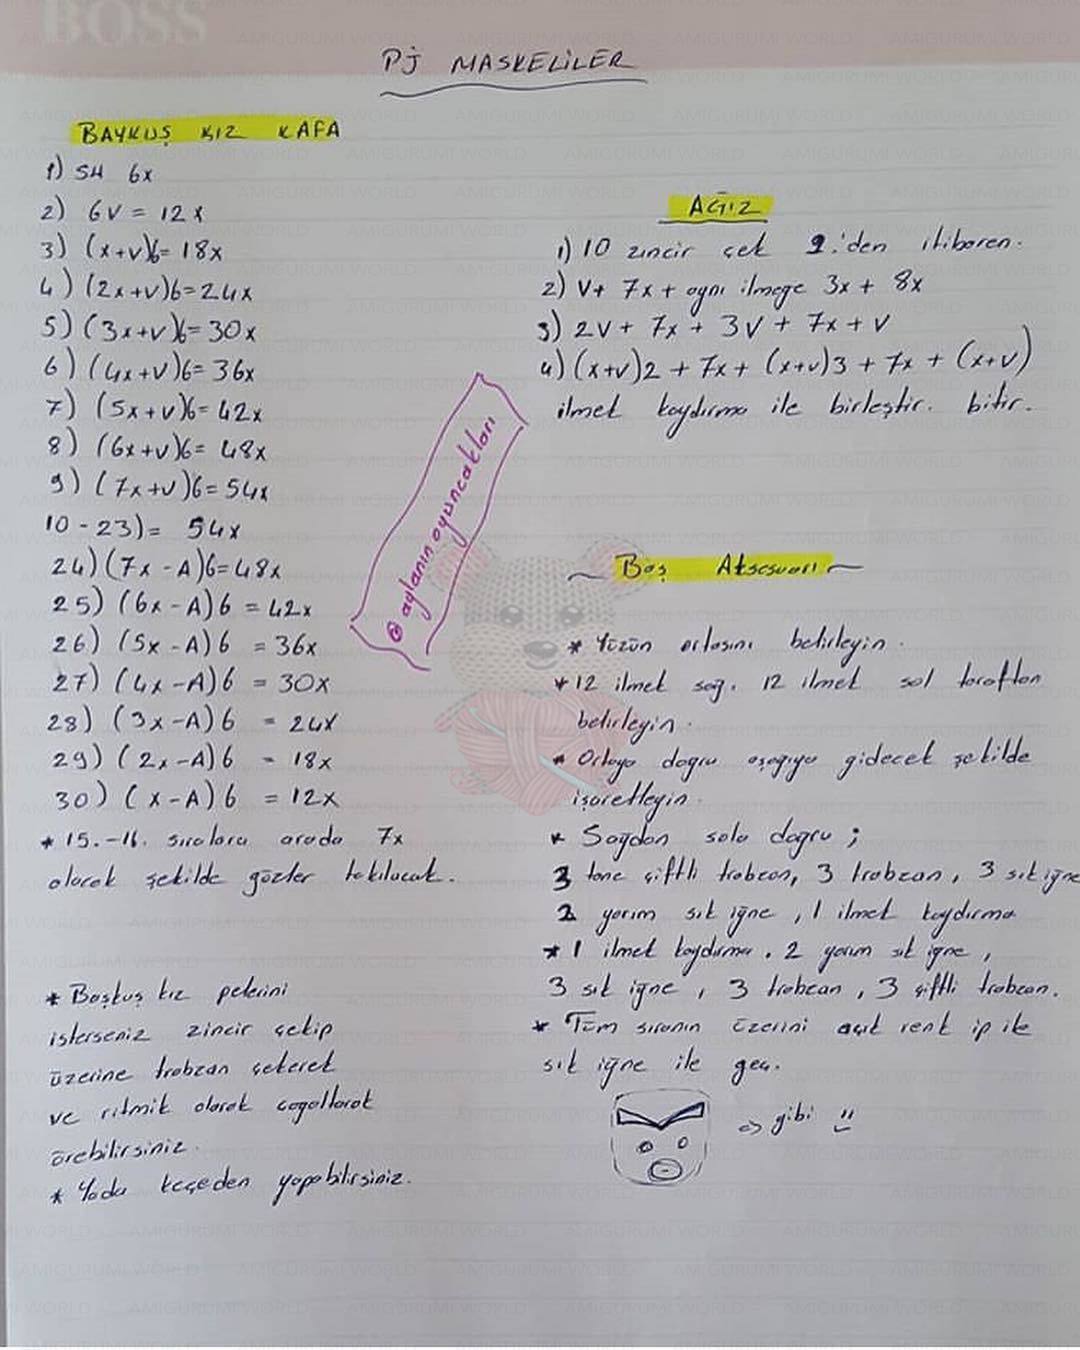 BOSS
PJ MASKELİLER
BAYKUŞ KIZ KAFA
1) SH 6x
2) 6V = 12x
3) (x+v)6= 18x
4) (2x+v)6=24x
5) (3x+v)6= 30x
6) (4x+v)6= 36x
7) (5x+v)6= 42x
8) (6x+v)6= 48x
9) (7x+v)6= 54x
10-23)= 54x
24) (7x-A)6=48x
25) (6x-A)6 = 42x
26) (5x-A)6 = 36x
27) (4x-A)6 = 30x
28) (3x-A)6 = 24x
29) (2x-A)6 = 18x
30) (x-A)6 = 12x
* 15.-16. sıralara arada 7x
olacak şekilde gözler takılacak.
* Baykuş kız pelerini
isterseniz zincir çekip
üzerine trabzan çekerek
ve ritmik olarak çoğaltarak
örebilirsiniz.
* Yada keçeden yapabilirsiniz.
@aylanınoyuncakları
AĞIZ
1) 10 zincir çek 2.'den itibaren.
2) V+ 7x + aynı ilmeğe 3x + 8x
3) 2V + 7x + 3V + 7x + V
4) (x+v)2 + 7x + (x+v)3 + 7x + (x+v)
ilmek kaydırma ile birleştir. bitir.
Baş Aksesuarı
* Yüzün ortasını belirleyin.
* 12 ilmek sağ. 12 ilmek sol taraftan
belirleyin.
* Ortaya doğru aşağıya gidecek şekilde
işaretleyin.
* Sağdan sola doğru ;
3 tane çiftli trabzan, 3 trabzan, 3 sık iğne
2 yarım sık iğne, 1 ilmek kaydırma
* 1 ilmek kaydırma. 2 yarım sık iğne,
3 sık iğne, 3 trabzan, 3 çiftli trabzan.
* Tüm sıranın üzerini açık renk ip ile
sık iğne ile geç.
=> gibi
AMIGURUMI WORLD